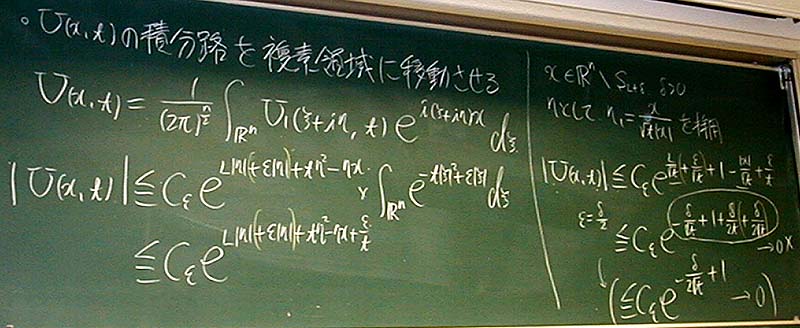 。U(x,t)の積分路を複素領域に移動させる
U(x,t) = 1/(2π)^{n/2} ∫_{ℝ^n} U_1(ξ+iη, t) e^{i(ξ+iη)x} dξ
|U(x,t)| ≦ C_ε e^{L|η|(+ε|η|)+tη²-ηx} × ∫_{ℝ^n} e^{-t|ξ|²+ε|ξ|} dξ
≦ C_ε e^{L|η|(+ε|η|)+tη²-ηx+ε/t}
x∈ℝ^n \ S_{L+δ}, δ>0
ηとして η_1 = x/(√t|x|) を採用
|U(x,t)| ≦ C_ε e^{L/√t(+ε/√t)+1-|x|/√t+ε/t}
ε=δ/2 ≦ C_ε e^{-δ/√t+1+δ/2√t(+δ/2t)} →0×
↓ (≦ C_ε e^{-δ/2√t+1} →0)